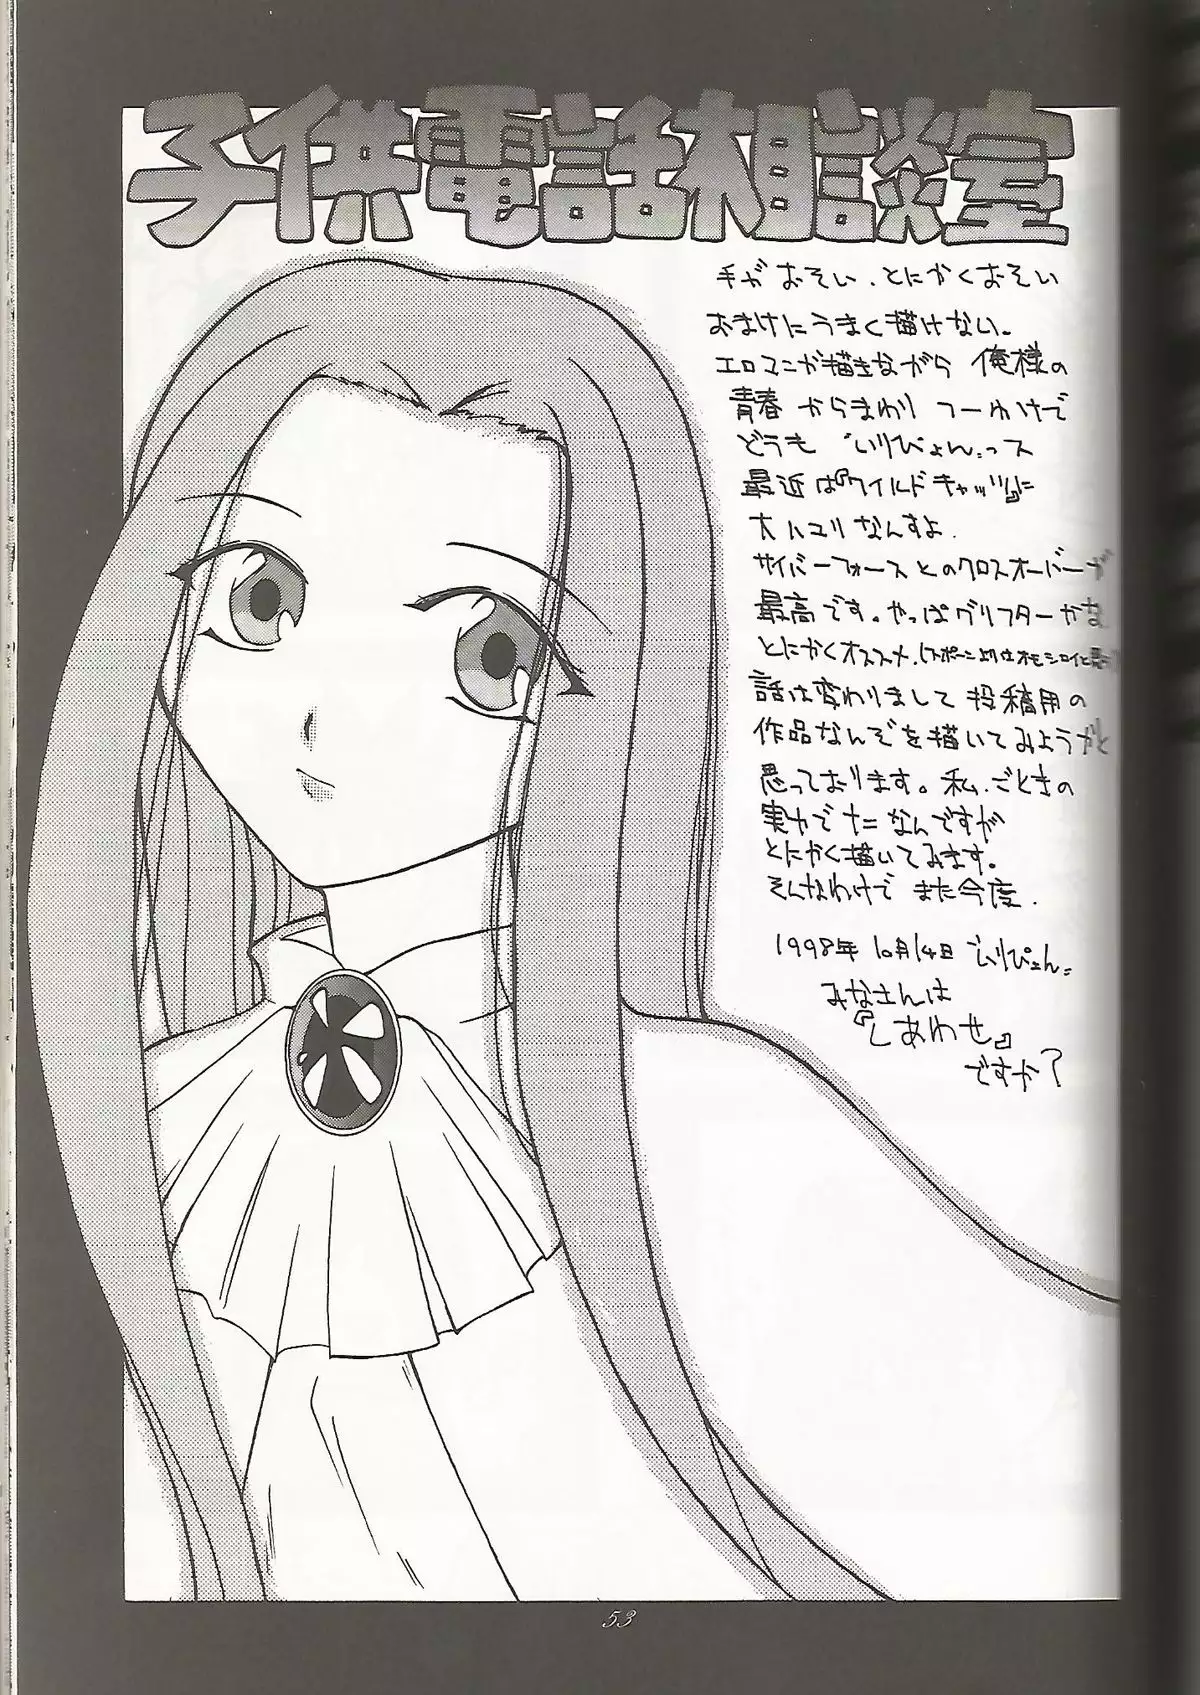 子供電話相談室
手がおそい、とにかくおそい
おまけにうまく描けない。
エロマンガ描きながら俺様の
青春からまわり つーわけで
どうも“いりぴょん”っス
最近は『ワイルドキャッツ』に
大ハマリなんすよ.
サイバーフォースとのクロスオーバーが
最高です。やっぱグリフターかな
とにかくオススメ.(スポーンよりはオモシロイと思
話は変わりまして投稿用の
作品なんぞを描いてみようかと
思っております。私ごときの
実力でナニなんですが
とにかく描いてみます。
そんなわけで また今度.
1998年10月14日 いりぴょん
みなさんは
『しあわせ』
ですか?
53